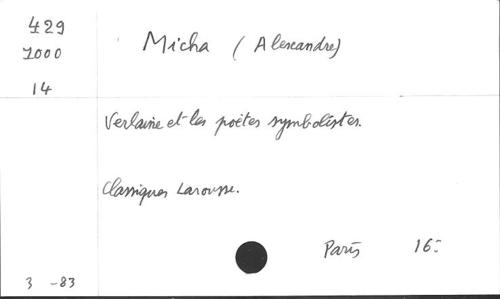 429
1000
14
Micha (Alexandre)
Verlaine et les poètes symbolistes.
Classiques Larousse.
Paris 16=
3 -83